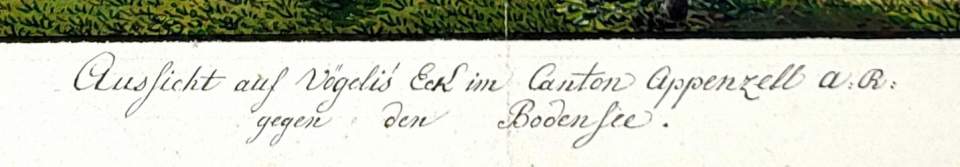 Aussicht auf Vögelis Eck im Canton Appenzell a: R:
gegen den Bodensee.